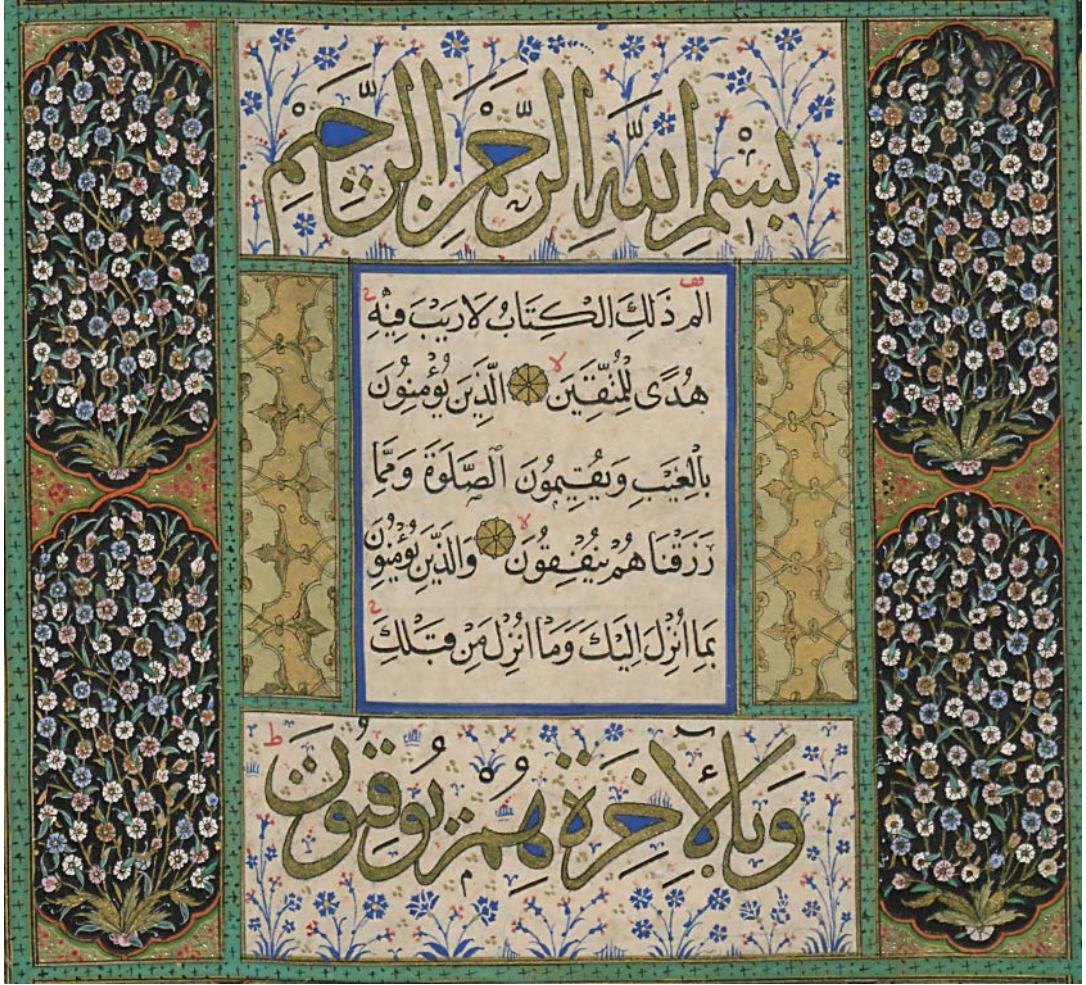 بِسْمِ اللّٰهِ الرَّحْمٰنِ الرَّحِيْمِ
الم ذٰلِكَ الْكِتَابُ لَا رَيْبَ فِيْهِ
هُدًى لِلْمُتَّقِينَ الَّذِينَ يُؤْمِنُونَ
بِالْغَيْبِ وَيُقِيمُونَ الصَّلٰوةَ وَمِمَّا
رَزَقْنَاهُمْ يُنْفِقُونَ وَالَّذِينَ يُؤْمِنُونَ
بِمَا اُنْزِلَ اِلَيْكَ وَمَا اُنْزِلَ مِنْ قَبْلِكَ
وَبِالْاٰخِرَةِ هُمْ يُوقِنُونَ